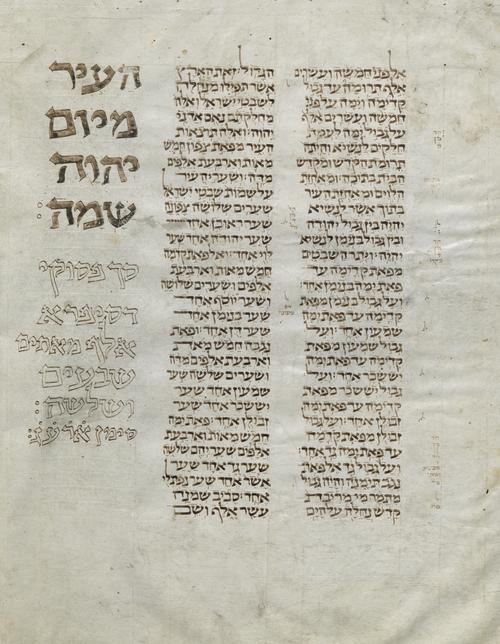 אל פני חמשה ועשרים
אלף תרומה עד גבול
קדימה וימה על פני
חמשה ועשרים אלף
על גבול ימה לעמת
חלקים לנשיא והיתה
תרומת הקדש ומקדש
הבית בתוכה: ומאחזת
הלוים ומאחזת העיר
בתוך אשר לנשיא
יהיה בין גבול יהודה
ובין גבול בנימן לנשיא
יהיה: ויתר השבטים
מפאת קדימה עד
פאת ימה בנימן אחד:
ועל גבול בנימן מפאת
קדימה עד פאת ימה
שמעון אחד: ועל גבול
שמעון מפאת
קדימה עד פאת ימה
יששכר אחד: ועל
גבול יששכר מפאת
קדימה עד פאת ימה
זבולן אחד: ועל גבול
זבולן מפאת קדימה
עד פאת ימה גד אחד:
ועל גבול גד אל פאת
נגב תימנה והיה גבול
מתמר מי מריבת
קדש נחלה על הים
הגדול: זאת הארץ
אשר תפילו מנחלה
לשבטי ישראל ואלה
מחלקתם נאם אדני
יהוה: ואלה תוצאות
העיר מפאת צפון חמש
מאות וארבעת אלפים
מדה: ושערי העיר
על שמות שבטי ישראל
שערים שלושה צפונה
שער ראובן אחד
שער יהודה אחד שער
לוי אחד: ואל פאת קדימה
חמש מאות וארבעת
אלפים ושערים שלושה
ושער יוסף אחד
שער בנימן אחד
שער דן אחד: ופאת
נגבה חמש מאות
וארבעת אלפים מדה
ושערים שלשה שער
שמעון אחד שער
יששכר אחד שער
זבולן אחד: פאת ימה
חמש מאות וארבעת
אלפים שעריהם שלשה
שער גד אחד שער
אשר אחד שער נפתלי
אחד: סביב שמנה
עשר אלף ושם
העיר
מיום
יהוה
שמה:
סך פסוקי
דסיפרא
אלף מאתים
שבעים
ושלשה:
סימן